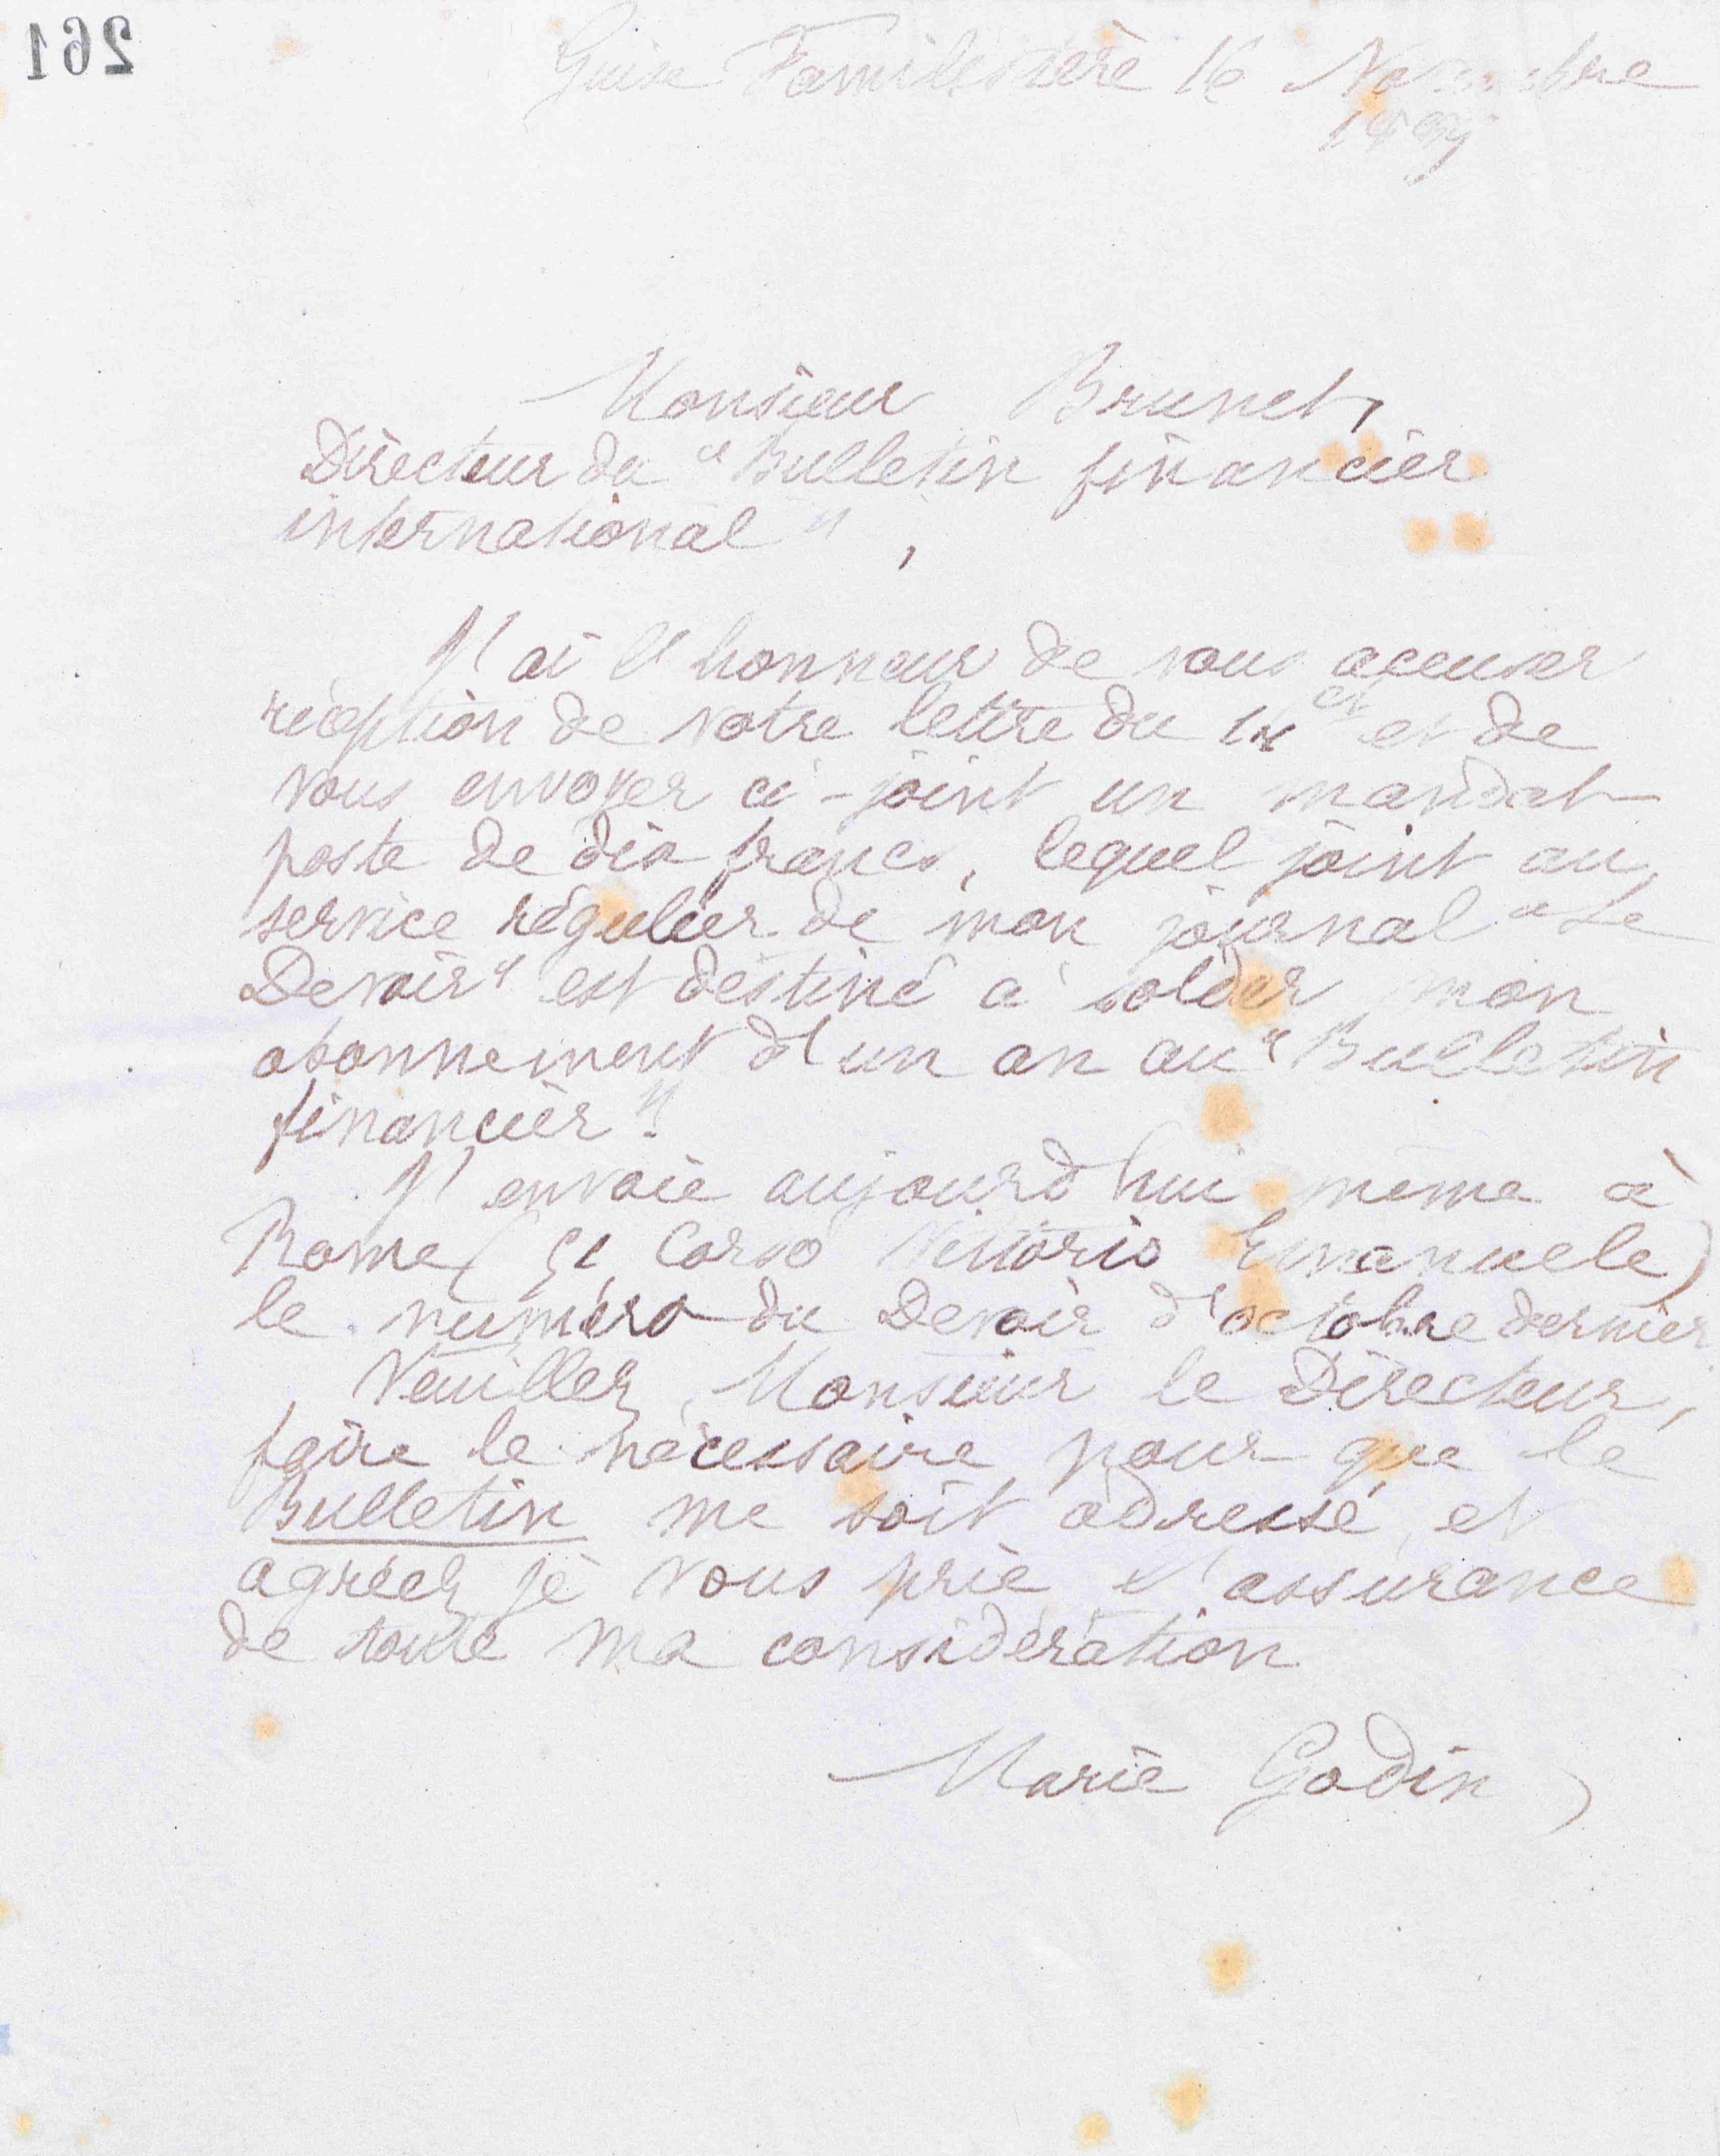 261
Guise Familistère 16 Novembre
Monsieur Brunet,
Directeur du "Bulletin financier
international",
J'ai l'honneur de vous accuser
réception de votre lettre du et de
vous envoyer ci-joint un mandat-
poste de dix francs, lequel joint au
service régulier de mon journal "Le
Devoir" est destiné à solder mon
abonnement d'un an au "Bulletin
financier".
J'envoie aujourd'hui même à
Rome ( Corso Vittorio Emanuele)
le numéro du Devoir d'octobre dernier.
Veuillez, Monsieur le Directeur,
faire le nécessaire pour que le
Bulletin me soit adressé, et
agréez je vous prie l'assurance
de toute ma considération
Marie Godin